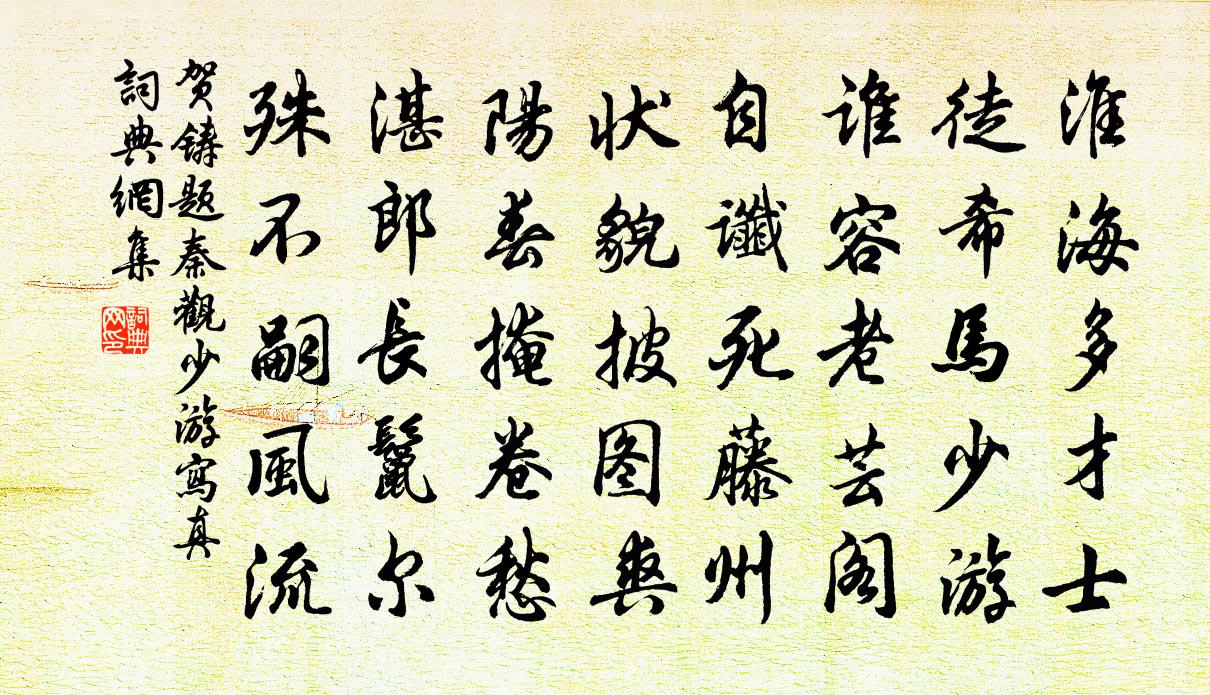 淮海多才士
徒希馬少游
谁容老芸阁
自讖死藤州
状貌披图爽
陽春掩卷愁
湛郎长鬣尔
殊不嗣風流
贺铸题秦觀少游寫真
詞典網集
詞典
网印